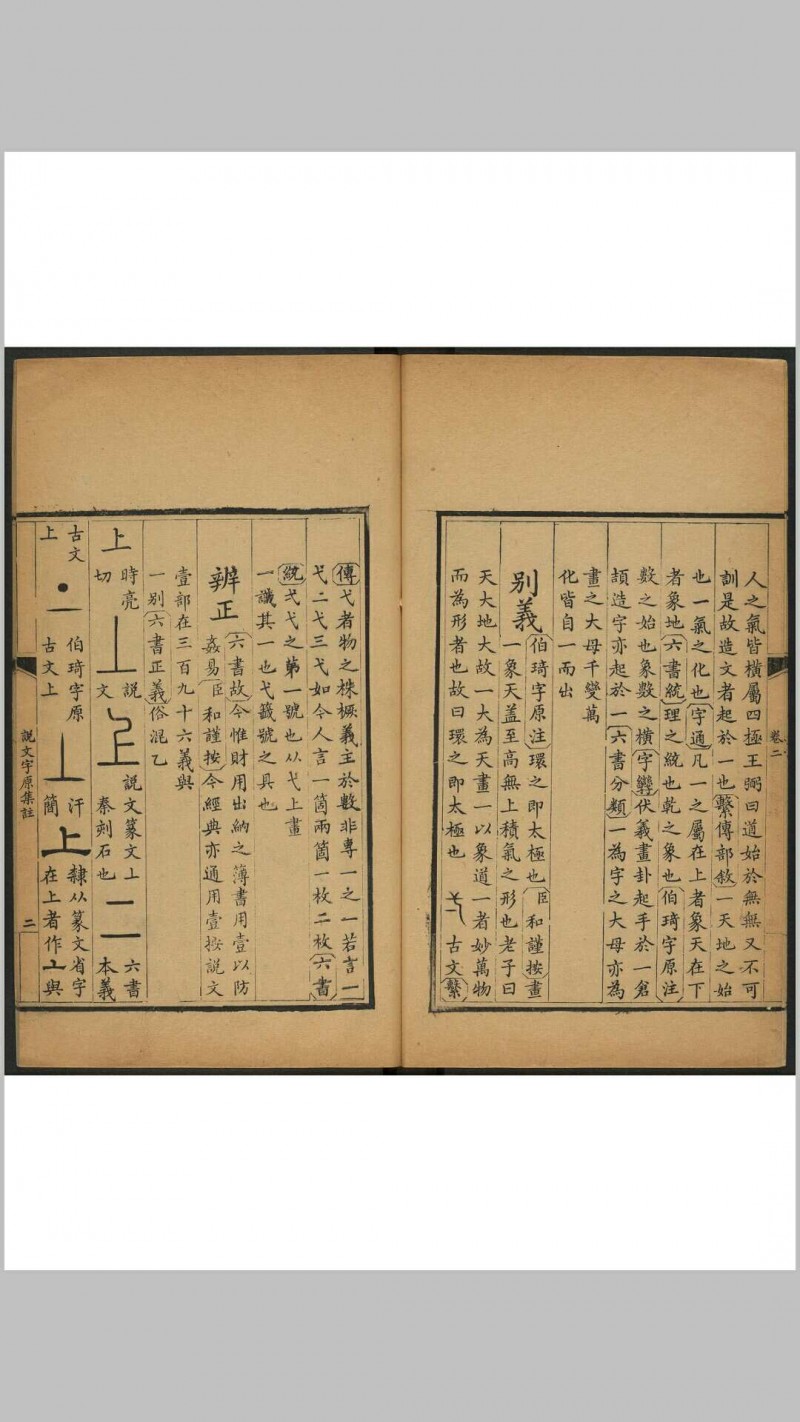 卷二
人之氣皆橫屬四極王弼曰道始於無無又不可
訓是故造文者起於一也繫傳部敘一天地之始
也一氣之化也字通凡一之屬在上者象天在下
者象地六書統理之統也乾之象也伯琦字原注
數之始也象數之橫字鸞伏羲畫卦起手於一倉
頡造字亦起於一六書分類一為字之大母亦為
畫之大母千變萬
化皆自一而出
別義
伯琦字原注環之即太極也臣和謹按畫
一象天盖至高無上積氣之形也老子曰
天大地大故一大為天畫一以象道一者妙萬物
而為形者也故曰環之即太極也 弌 古文繫
傳弋者物之株橛義主於數非專一之一若言一
弋二弋三弋如今人言一箇兩箇一枚二枚六書
統弌弋之第一號也从弋上畫
一識其一也弋籤號之具也
辨正
六書故今惟財用出納之薄書用壹以防
姦易臣和謹按今經典亦通用壹按說文
壹部在三百九十六義與
一別六書正義俗混乙
上
時亮
切
丄 說
文
說文篆文上
秦刻石也
二 六書
本義
古文
上
伯琦字原
古文上
丄 汗
簡
上 隸从篆文省字
在上者作亠與
說文字原集註
二